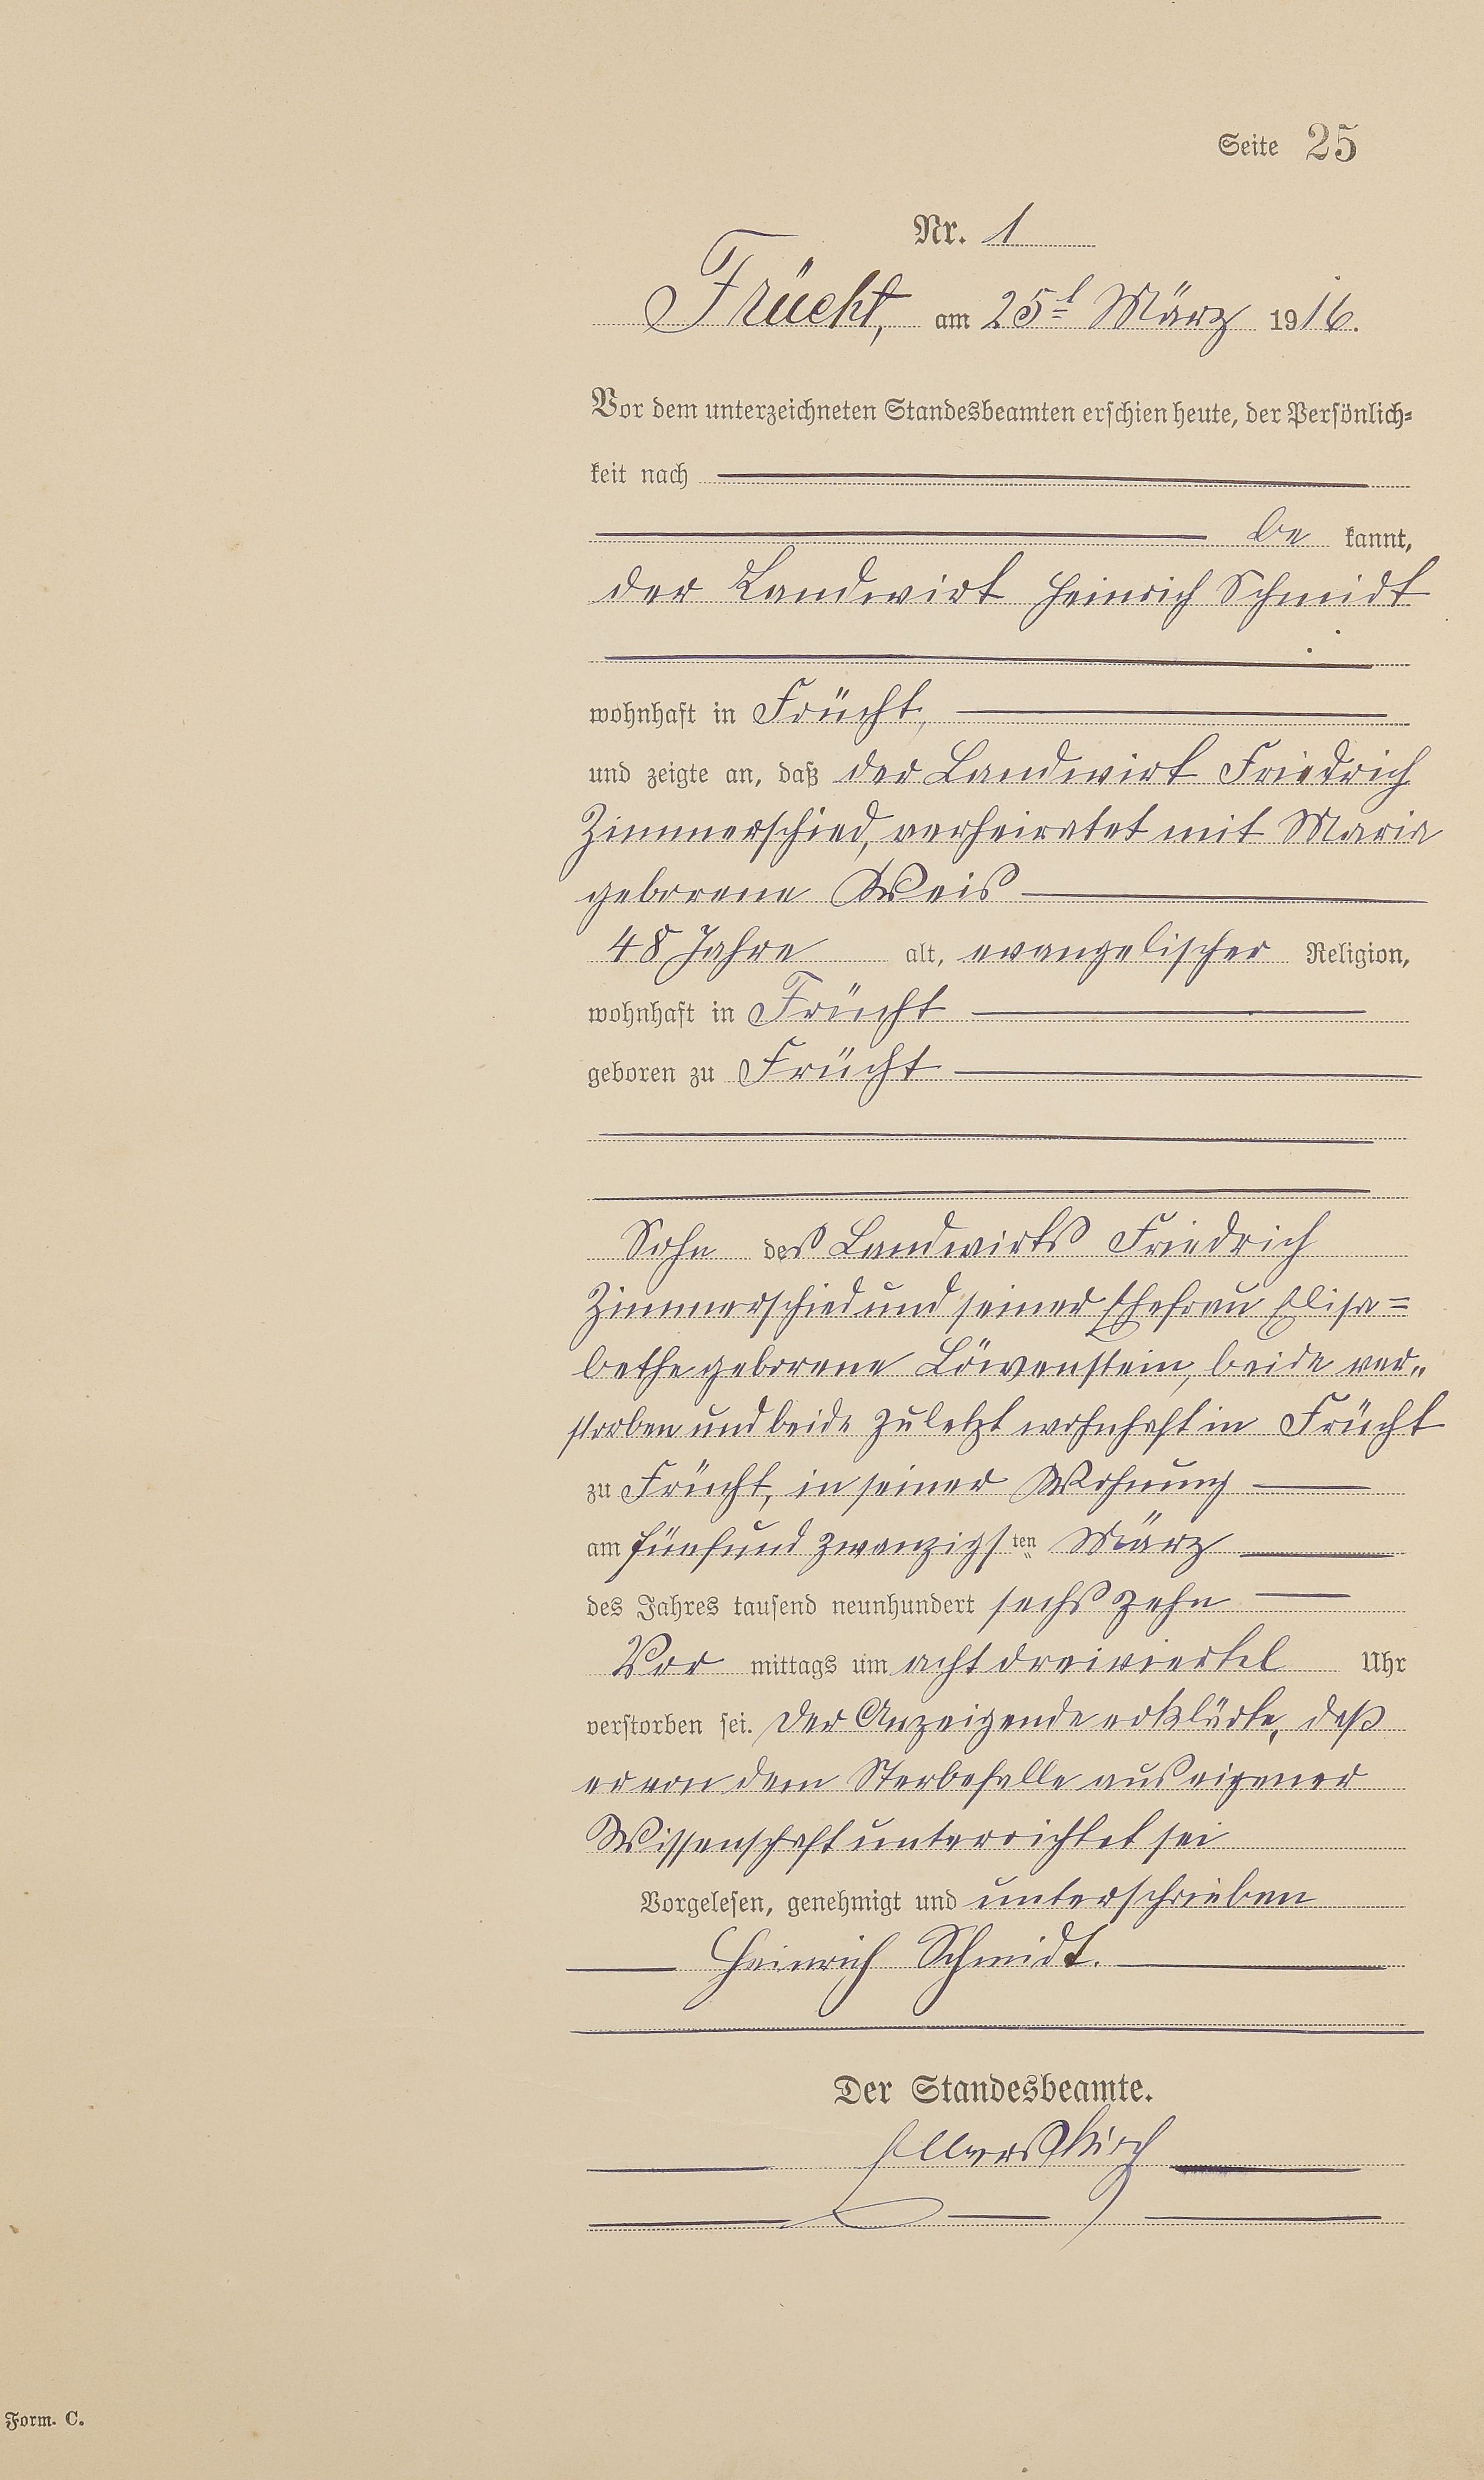 Seite 25
Nr. 1
Frücht, am 25t März 1916.
Vor dem unterzeichneten Standesbeamten erschien heute, der Persönlich=
keit nach
be kannt,
der Landwirt Heinrich Schmidt
wohnhaft in Frücht,
und zeigte an, daß der Landwirt Friedrich
Zimmerschied, verheiratet mit Maria
geborene Weis
48 Jahre alt, evangelischer Religion,
wohnhaft in Frücht
geboren zu Frücht
Sohn des Landwirts Friedrich
Zimmerschied und seiner Ehefrau Elisa=
bethe geborene Löwenstein, beide ver„
storben und beide zuletzt wohnhaft in Frücht
zu Frücht, in seiner Wohnung
am fünfund zwanzigsten März
des Jahres tausend neunhundert sechszehn
Vor mittags um acht dreiviertel Uhr
verstorben sei. Der Anzeigende erklärte, daß
er von dem Sterbefalle aus eigener
Wissenschaft unterrichtet sei
Vorgelesen, genehmigt und unterschrieben
Heinrich Schmidt.
Der Standesbeamte.
Form. C.